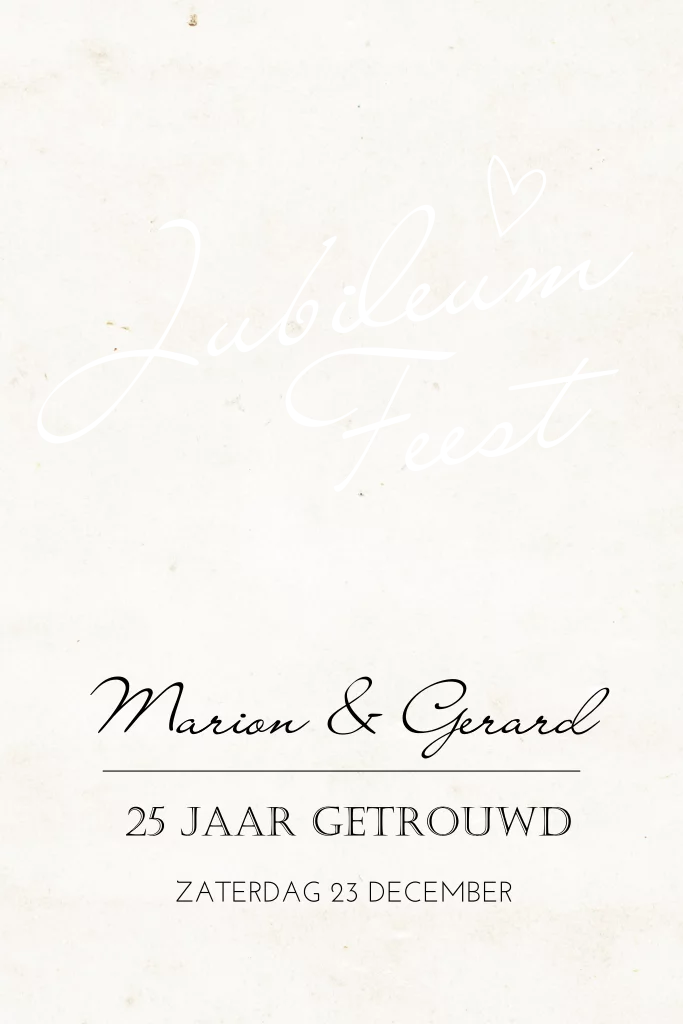 Jubileum
Feest
Marion & Gerard
25 JAAR GETROUWD
ZATERDAG 23 DECEMBER